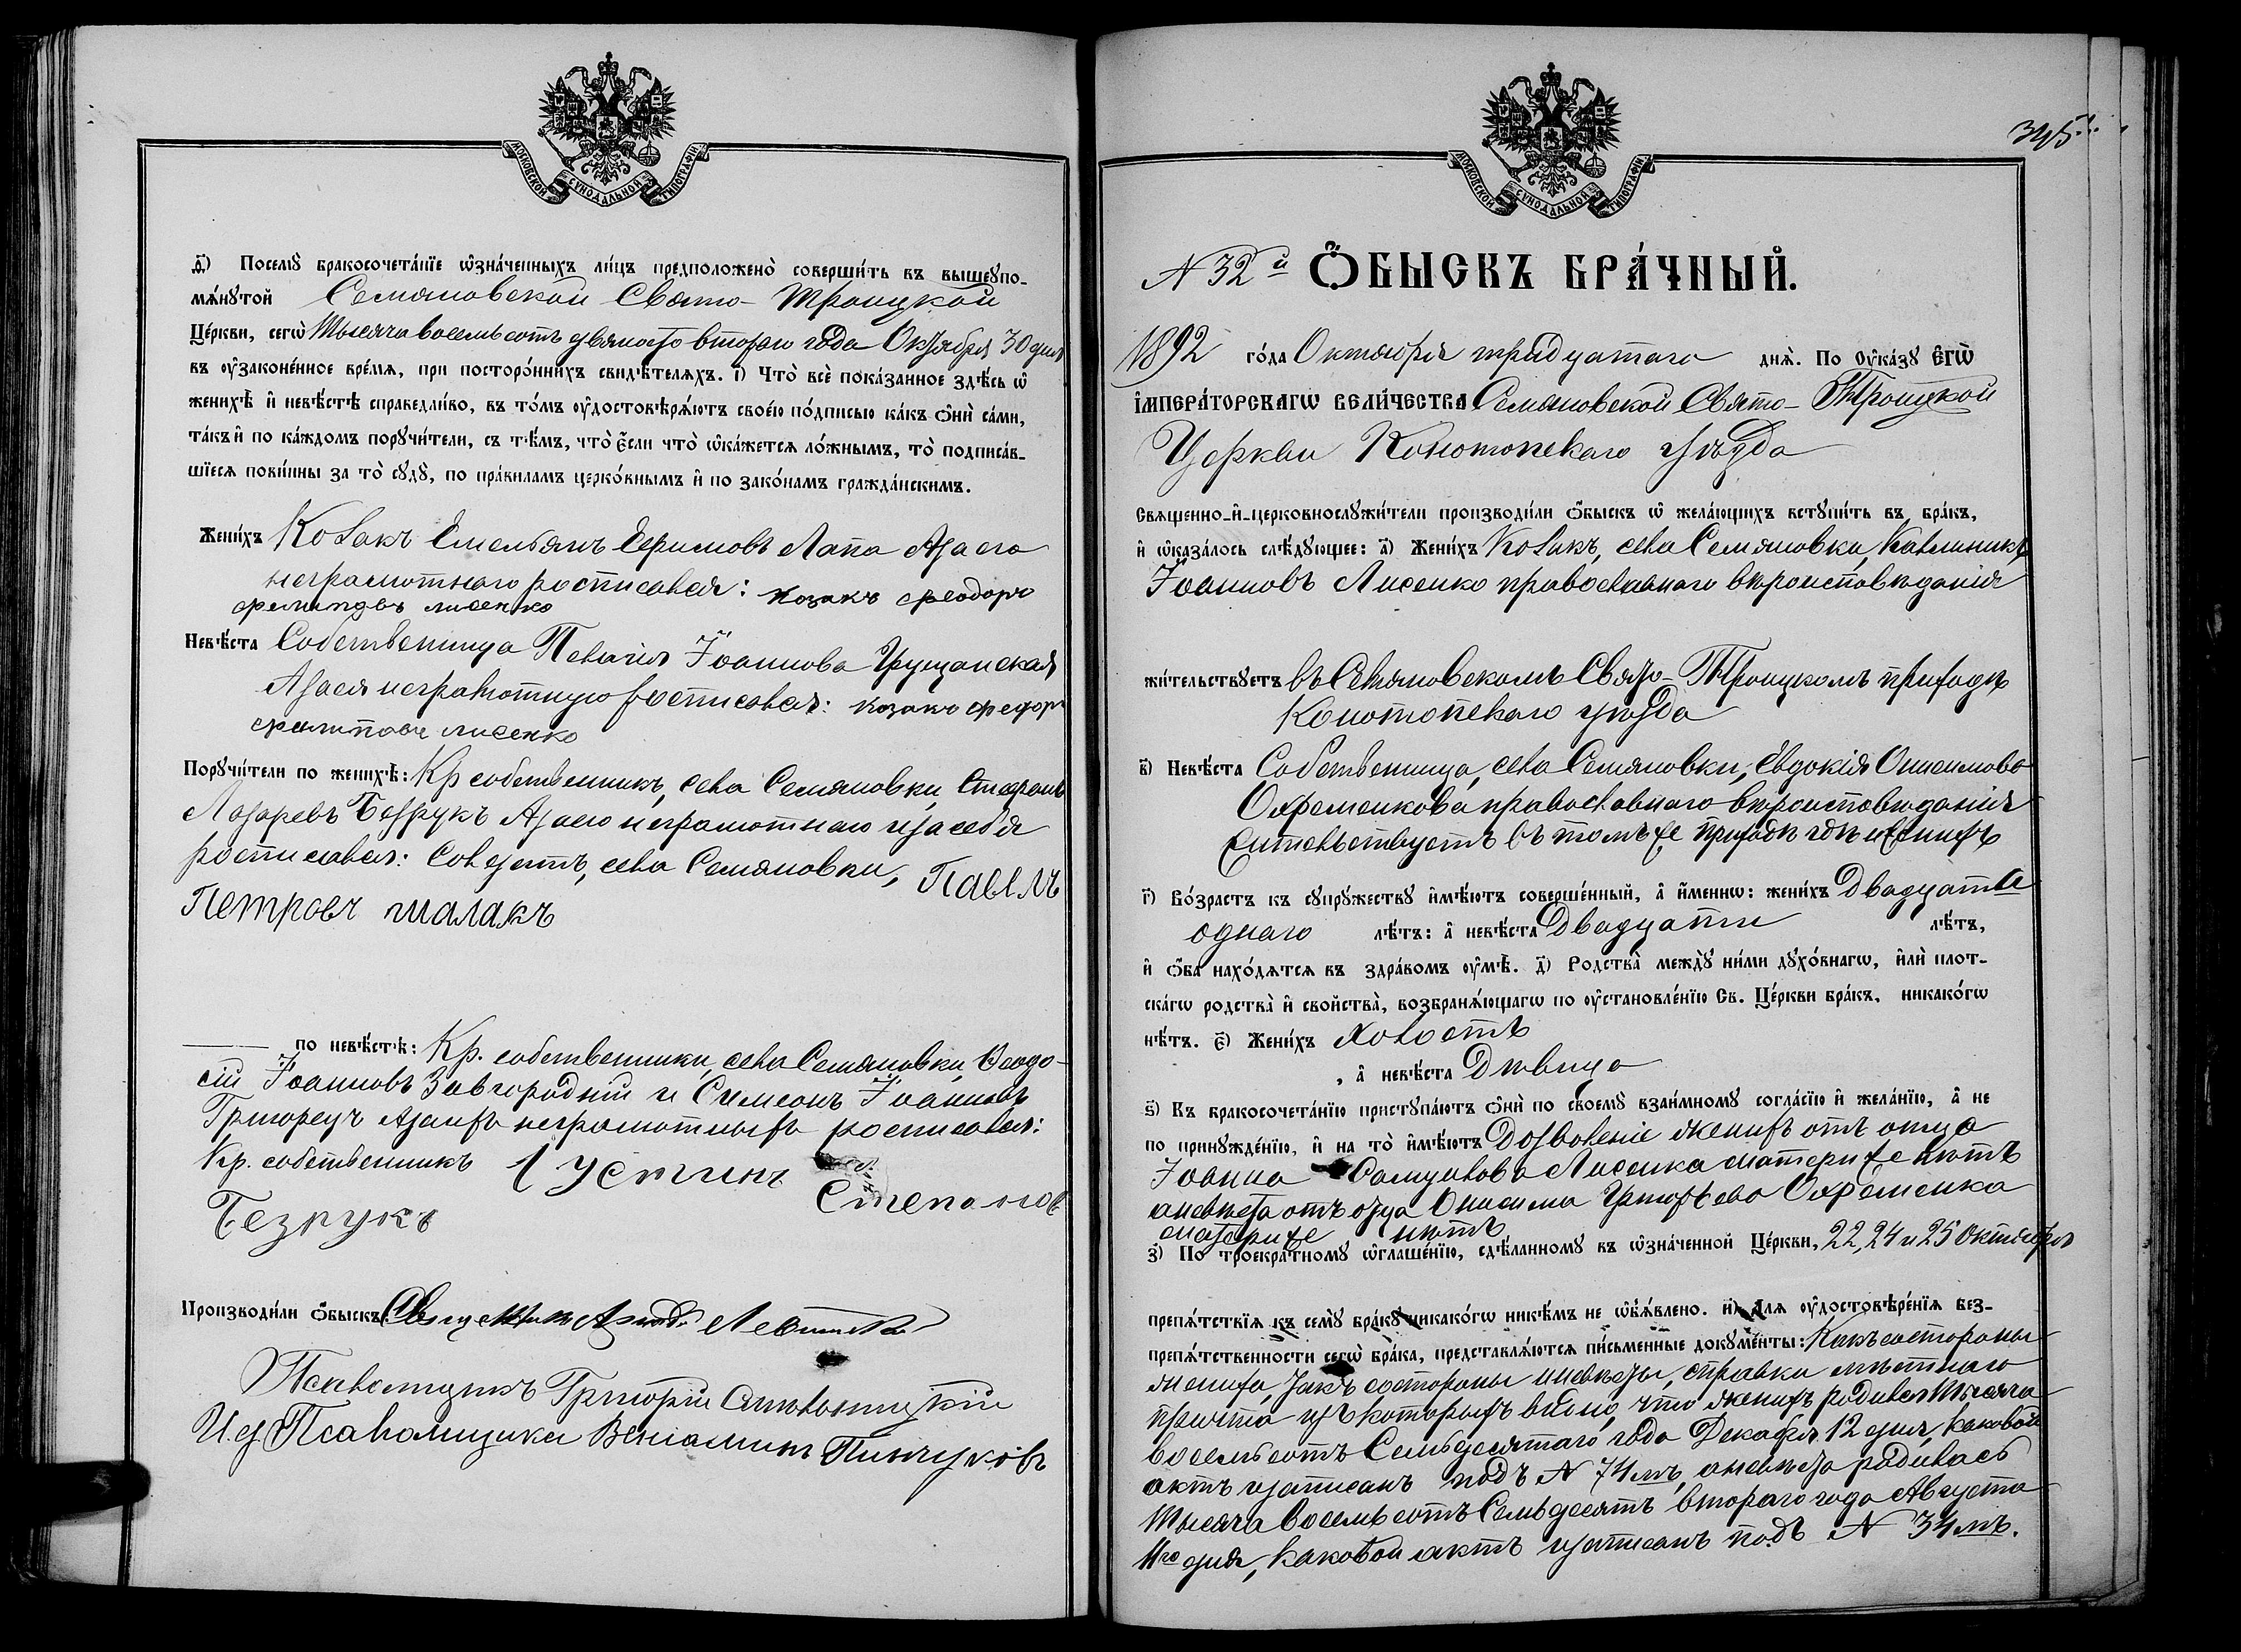 МОСКОВСКОЙ СУНОДАЛЬНОЙ ТИПОГРАФІИ
д҃і) Посемꙋ бракосочета́нїе ѡ҆зна́ченныхъ ли́цъ предположено̀ соверши́ть въ вышеꙋпо-
мѧ́нꙋтой Семяновской Свято-Троицкой
Це́ркви, сегѡ̀ Тысяча восемьсотъ девяносто втораго года Октября 30 дня
въ ᲂу҆зако́ненное вре́мѧ, при посторо́ннихъ свидѣ́телѧхъ. і҃) Что̀ всѐ пока́занное здѣ́сь ѡ҆
женихѣ̀ и҆ невѣ́стѣ справедли́во, въ то́мъ ᲂу҆достовѣрѧ́ютъ свое́ю по́дписью ка́къ ѻ҆нѝ са́ми,
та́къ и҆ по ка́ждомъ порꙋчи́тели, съ тѣ́мъ, что̀ є҆́сли что̀ ѡ҆ка́жетсѧ ло́жнымъ, то̀ подписа́в-
шїесѧ пови́нны за то̀ сꙋдꙋ̀, по пра́виламъ церко́внымъ и҆ по зако́намъ гражда́нскимъ.
Жени́хъ Козакъ Емельянъ Ефимовъ Лапа А за его
неграмотнаго росписался: козакъ феодоръ
филиповъ лисенко
Невѣ́ста Собственница Пелагія Іоаннова Грущанская
А за ея неграмотную росписался: козакъ федоръ
филиповъ лисенко
Порꙋчи́тели по женихѣ̀: Кр собственникъ, села Семяновки, Стефанъ
Лазаревъ Безрукъ А за его неграмотнаго и за себя
росписался: Солдатъ, села Семяновки, Павлъ
Петровъ шалакъ
по невѣ́стѣ: Кр. собственники, села Семяновки, Ѳеодо-
сій Іоанновъ Завгородній и Симеонъ Іоанновъ
Григорецъ А за ихъ неграмотныхъ росписался:
Кр. собственникъ Іустинъ
Степановъ
Безрукъ
Производи́ли ѻ҆́быскъ: Священникъ Левитскій
Псаломщикъ Григорій
И. д. Псаломщика Веніаминъ Пинчуковъ
345.
МОСКОВСКОЙ СУНОДАЛЬНОЙ ТИПОГРАФІИ
N 32й Ѻ҆БЫСКЪ БРА́ЧНЫЙ.
1892 го́да Октября тридцатаго днѧ̀. По Оу҆ка́зꙋ Є҆ГѠ̀
И҆МПЕРА́ТОРСКАГѠ ВЕЛИ́ЧЕСТВА Семяновской Свято-Троицкой
Церкви Конотопскаго уѣзда
Свѧщенно-и҆-церковнослꙋжи́тели производи́ли ѻ҆́быскъ ѡ҆ жела́ющихъ встꙋпи́ть въ бра́къ,
и҆ ѡ҆каза́лось слѣ́дꙋющее: а҃) Жени́хъ Козакъ, села Семяновки, Каллиникъ
Іоанновъ Лисенко православнаго вѣроисповѣданія
жи́тельствꙋетъ въ Семяновскомъ Свято-Троицкомъ приходѣ
Конотопскаго уѣзда
в҃) Невѣ́ста Собственница, села Семяновки, Евдокія Онисимова
Охрѣменкова православнаго вѣроисповѣданія
жительствуетъ въ томъ же приходѣ гдѣ и женихъ
г҃) Во́зрастъ къ сꙋпрꙋ́жествꙋ и҆мѣ́ютъ соверше́нный, а҆ и҆́меннѡ: жени́хъ Двадцать
одного лѣ́тъ: а҆ невѣ́ста Двадцати лѣ́тъ,
и҆ ѻ҆́ба нахо́дѧтсѧ въ здра́вомъ ᲂу҆мѣ̀. д҃) Родства̀ междꙋ̀ ни́ми дꙋхо́внагѡ, и҆лѝ плот-
ска́гѡ родства̀ и҆ свойства̀, возбранѧ́ющагѡ по ᲂу҆становле́нїю Св. Це́ркви бра́къ, никако́гѡ
нѣ́тъ. є҃) Жени́хъ Холостъ
, а҆ невѣ́ста Дѣвица
ѕ҃) Къ бракосочета́нїю пристꙋпа́ютъ ѻ҆нѝ по своемꙋ̀ взаи́мномꙋ согла́сїю и҆ жела́нїю, а҆ не
по принꙋжде́нїю, и҆ на то̀ и҆мѣ́ютъ Дозволеніе женихъ отъ отца
Іоанна Самуилова Лисенка матери же нѣтъ
а невѣста отъ отца Онисима Григорьева Охрѣменка
матери же нѣтъ
з҃) По троекра́тномꙋ ѡ҆глаше́нїю, сдѣ́ланномꙋ въ ѡ҆зна́ченной Це́ркви, 22, 24 и 25 Октября
препѧ́тствїѧ къ семꙋ̀ бра́кꙋ никако́гѡ никѣ́мъ не ѡ҆бъѧ́влено. и҃) Длѧ ᲂу҆достовѣре́нїѧ без-
препѧ́тственности сегѡ̀ бра́ка, представлѧ́ютсѧ пи́сьменные докꙋме́нты: Какъ со стороны
жениха, такъ со стороны и невѣсты, справки мѣстнаго
причта изъ которыхъ видно, что женихъ родился тысяча
восемьсотъ Семьдесятаго года Декабря 12 дня, каковой
актъ записанъ подъ N 74мъ, а невѣста родилась
тысяча восемьсотъ Семьдесятъ втораго года Августа
11го дня, каковой актъ записанъ подъ N 34мъ.